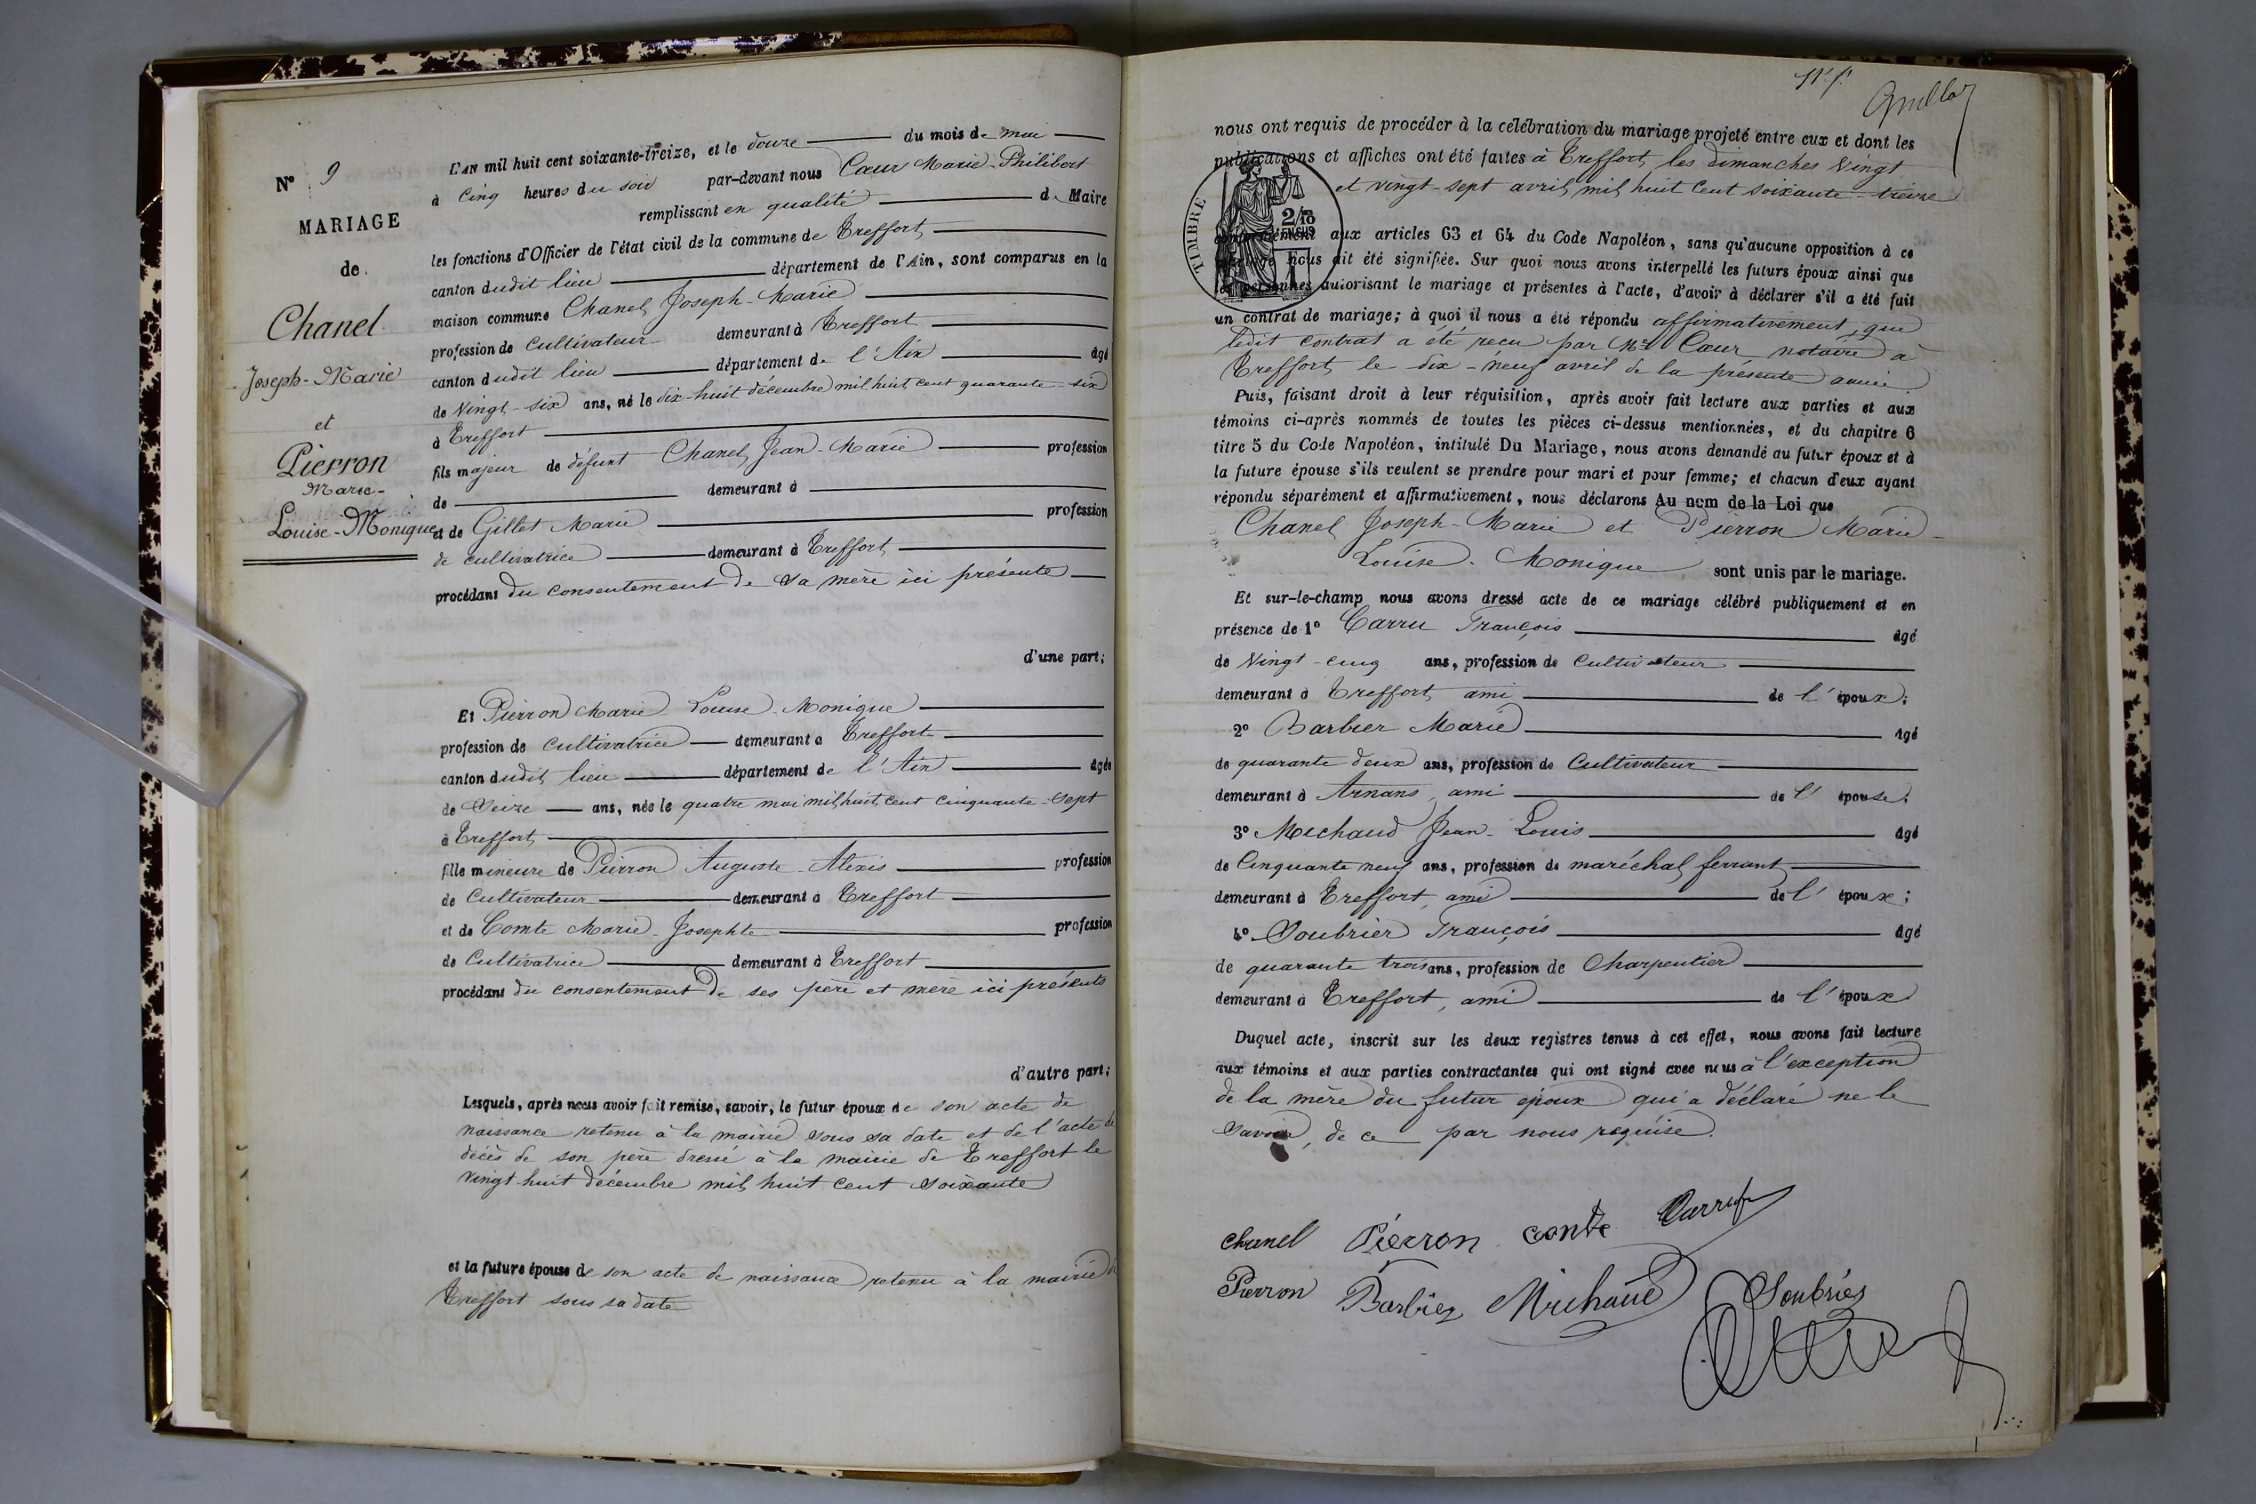 N° 9
MARIAGE
de
Chanel
Joseph-Marie
et
Pierron
Marie-
Louise-Monique
L'an mil huit cent soixante-treize, et le douze du mois de mai
à cinq heures du soir par-devant nous Cœur Marie-Philibert
remplissant en qualité de Maire
les fonctions d'Officier de l'état civil de la commune de Treffort
canton dudit lieu département de l'Ain, sont comparus en la
maison commune Chanel Joseph-Marie
profession de Cultivateur demeurant à Treffort
canton dudit lieu département de l'Ain âgé
de Vingt-six ans, né le dix-huit décembre mil huit cent quarante-six
à Treffort
fils majeur de défunt Chanel Jean-Marie profession
de demeurant à
et de Gillet Marie profession
de cultivatrice demeurant à Treffort
procédant du consentement de sa mère ici présente
d'une part;
Et Pierron Marie Louise-Monique
profession de Cultivatrice demeurant à Treffort
canton dudit lieu département de l'Ain âgée
de Seize ans, née le quatre mai mil huit cent cinquante-sept
à Treffort
fille mineure de Pierron Auguste-Alexis profession
de Cultivateur demeurant à Treffort
et de Comte Marie-Josephte profession
de Cultivatrice demeurant à Treffort
procédant du consentement de ses père et mère ici présents
d'autre part;
Lesquels, après nous avoir fait remise, savoir, le futur époux de son acte de
naissance retenu à la mairie sous sa date et de l'acte de
décès de son père dressé à la mairie de Treffort le
vingt-huit décembre mil huit cent soixante
et la future épouse de son acte de naissance retenu à la mairie de
Treffort sous sa date
nous ont requis de procéder à la célébration du mariage projeté entre eux et dont les
publications et affiches ont été faites à Treffort, les dimanches Vingt
et vingt-sept avril mil huit cent soixante-treize
TIMBRE
2/10
EN SUS
conformément aux articles 63 et 64 du Code Napoléon, sans qu'aucune opposition à ce
mariage nous ait été signifiée. Sur quoi nous avons interpellé les futurs époux ainsi que
les personnes autorisant le mariage et présentes à l'acte, d'avoir à déclarer s'il a été fait
un contrat de mariage; à quoi il nous a été répondu affirmativement, que
ledit contrat a été reçu par Me Cœur notaire à
Treffort le dix-neuf avril de la présente année.
Puis, faisant droit à leur réquisition, après avoir fait lecture aux parties et aux
témoins ci-après nommés de toutes les pièces ci-dessus mentionnées, et du chapitre 6
titre 5 du Code Napoléon, intitulé Du Mariage, nous avons demandé au futur époux et à
la future épouse s'ils veulent se prendre pour mari et pour femme; et chacun d'eux ayant
répondu séparément et affirmativement, nous déclarons Au nom de la Loi que
Chanel Joseph-Marie et Pierron Marie-
Louise-Monique sont unis par le mariage.
Et sur-le-champ nous avons dressé acte de ce mariage célébré publiquement et en
présence de 1° Carru François âgé
de Vingt-cinq ans, profession de Cultivateur
demeurant à Treffort, ami de l'époux;
2° Barbier Marie âgé
de quarante deux ans, profession de Cultivateur
demeurant à Arnans, ami de l'épouse;
3° Michaud Jean-Louis âgé
de Cinquante neuf ans, profession de maréchal ferrant
demeurant à Treffort, ami de l'époux;
4° Soubrier François âgé
de quarante trois ans, profession de Charpentier
demeurant à Treffort, ami de l'époux
Duquel acte, inscrit sur les deux registres tenus à cet effet, nous avons fait lecture
aux témoins et aux parties contractantes qui ont signé avec nous à l'exception
de la mère du futur époux qui a déclaré ne le
savoir, de ce par nous requise.
chanel Pierron conte Carru
Pierron Barbier Michaud Soubrier